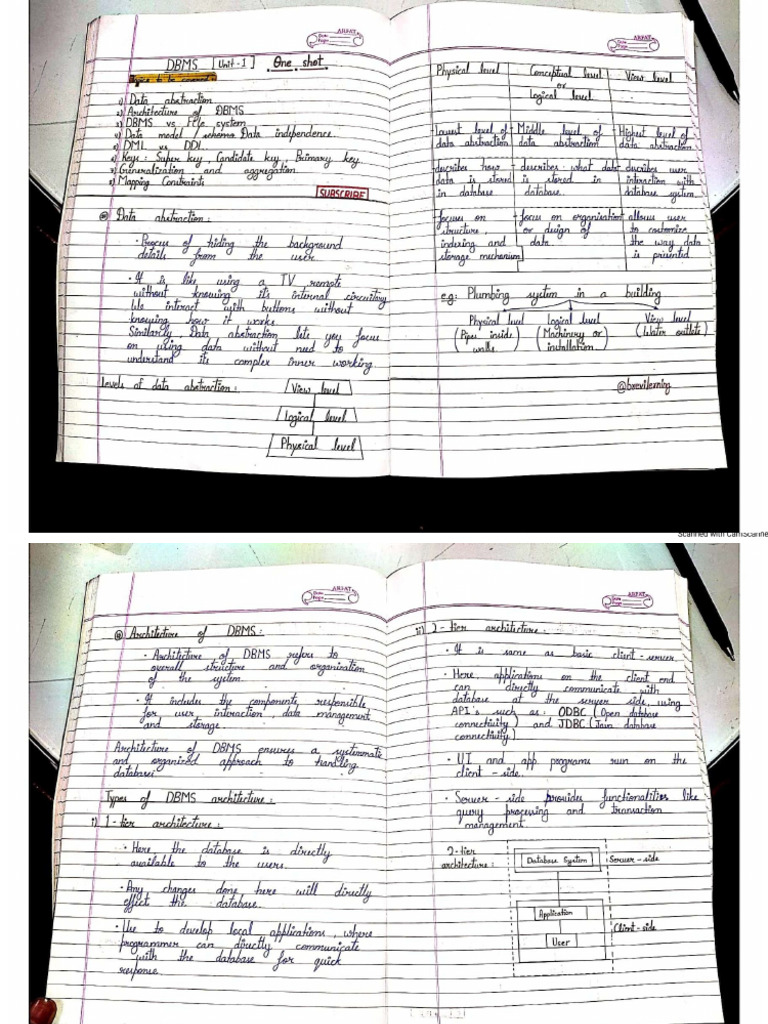 ARFAT
DBMS [Unit-I] One shot
1) Data abstraction
2) Architecture of DBMS
3) DBMS vs File system
4) Data model / schema Data independence
5) DML vs DDL
6) Keys: Super key, Candidate key, Primary key
7) Generalization and aggregation
8) Mapping Constraints
SUBSCRIBE
Data abstraction:
• Process of hiding the background
details from the user
• It is like using a TV remote
without knowing its internal circuitory
We interact with buttons without
knowing how it works.
Similarly Data abstraction lets you focus
on using data without need to
understand its complex inner working.
Levels of data abstraction:
View level
Logical level
Physical level
ARFAT
Physical level
Conceptual level
or
Logical level
View level
- Lowest level of
data abstraction
- Middle level of
data abstraction
- Highest level of
data abstraction
- describes how
data is stored
in database
- describes what data
is stored in
database.
- describes user
interaction with
database system.
- focuses on
structure
indexing and
storage mechanism
- focus on organisation
or design of
data.
- allows user
to customize
the way data
is presented
e.g: Plumbing system in a building
Physical level
(Pipes inside
walls)
Logical level
(Machinery or
installation)
View level
(Water outlets)
@brevilerning
Scanned with CamScanne
ARFAT
Architecture of DBMS:
• Architecture of DBMS refers to
overall structure and organization
of the system.
• It includes the components responsible
for user interaction, data management
and storage.
Architecture of DBMS ensures a systematic
and organized approach to handling
databases.
Types of DBMS architecture:
i) 1-tier architecture:
• Here the database is directly
available to the users.
• Any changes done here will directly
effect the database.
• Use to develop local applications, where
programmer can directly communicate
with the database for quick
response.
ARFAT
ii) 2-tier architecture:
• It is same as basic client-server
• Here, applications on the client end
can directly communicate with
database at the server side, using
API's such as: ODBC (Open database
connectivity) and JDBC (Java database
connectivity.)
• UI and app. programs run on the
client-side.
• Server-side provides functionalities like
query processing and transaction
management
2-tier
architecture:
Database System
Server-side
Application
User
Client-side